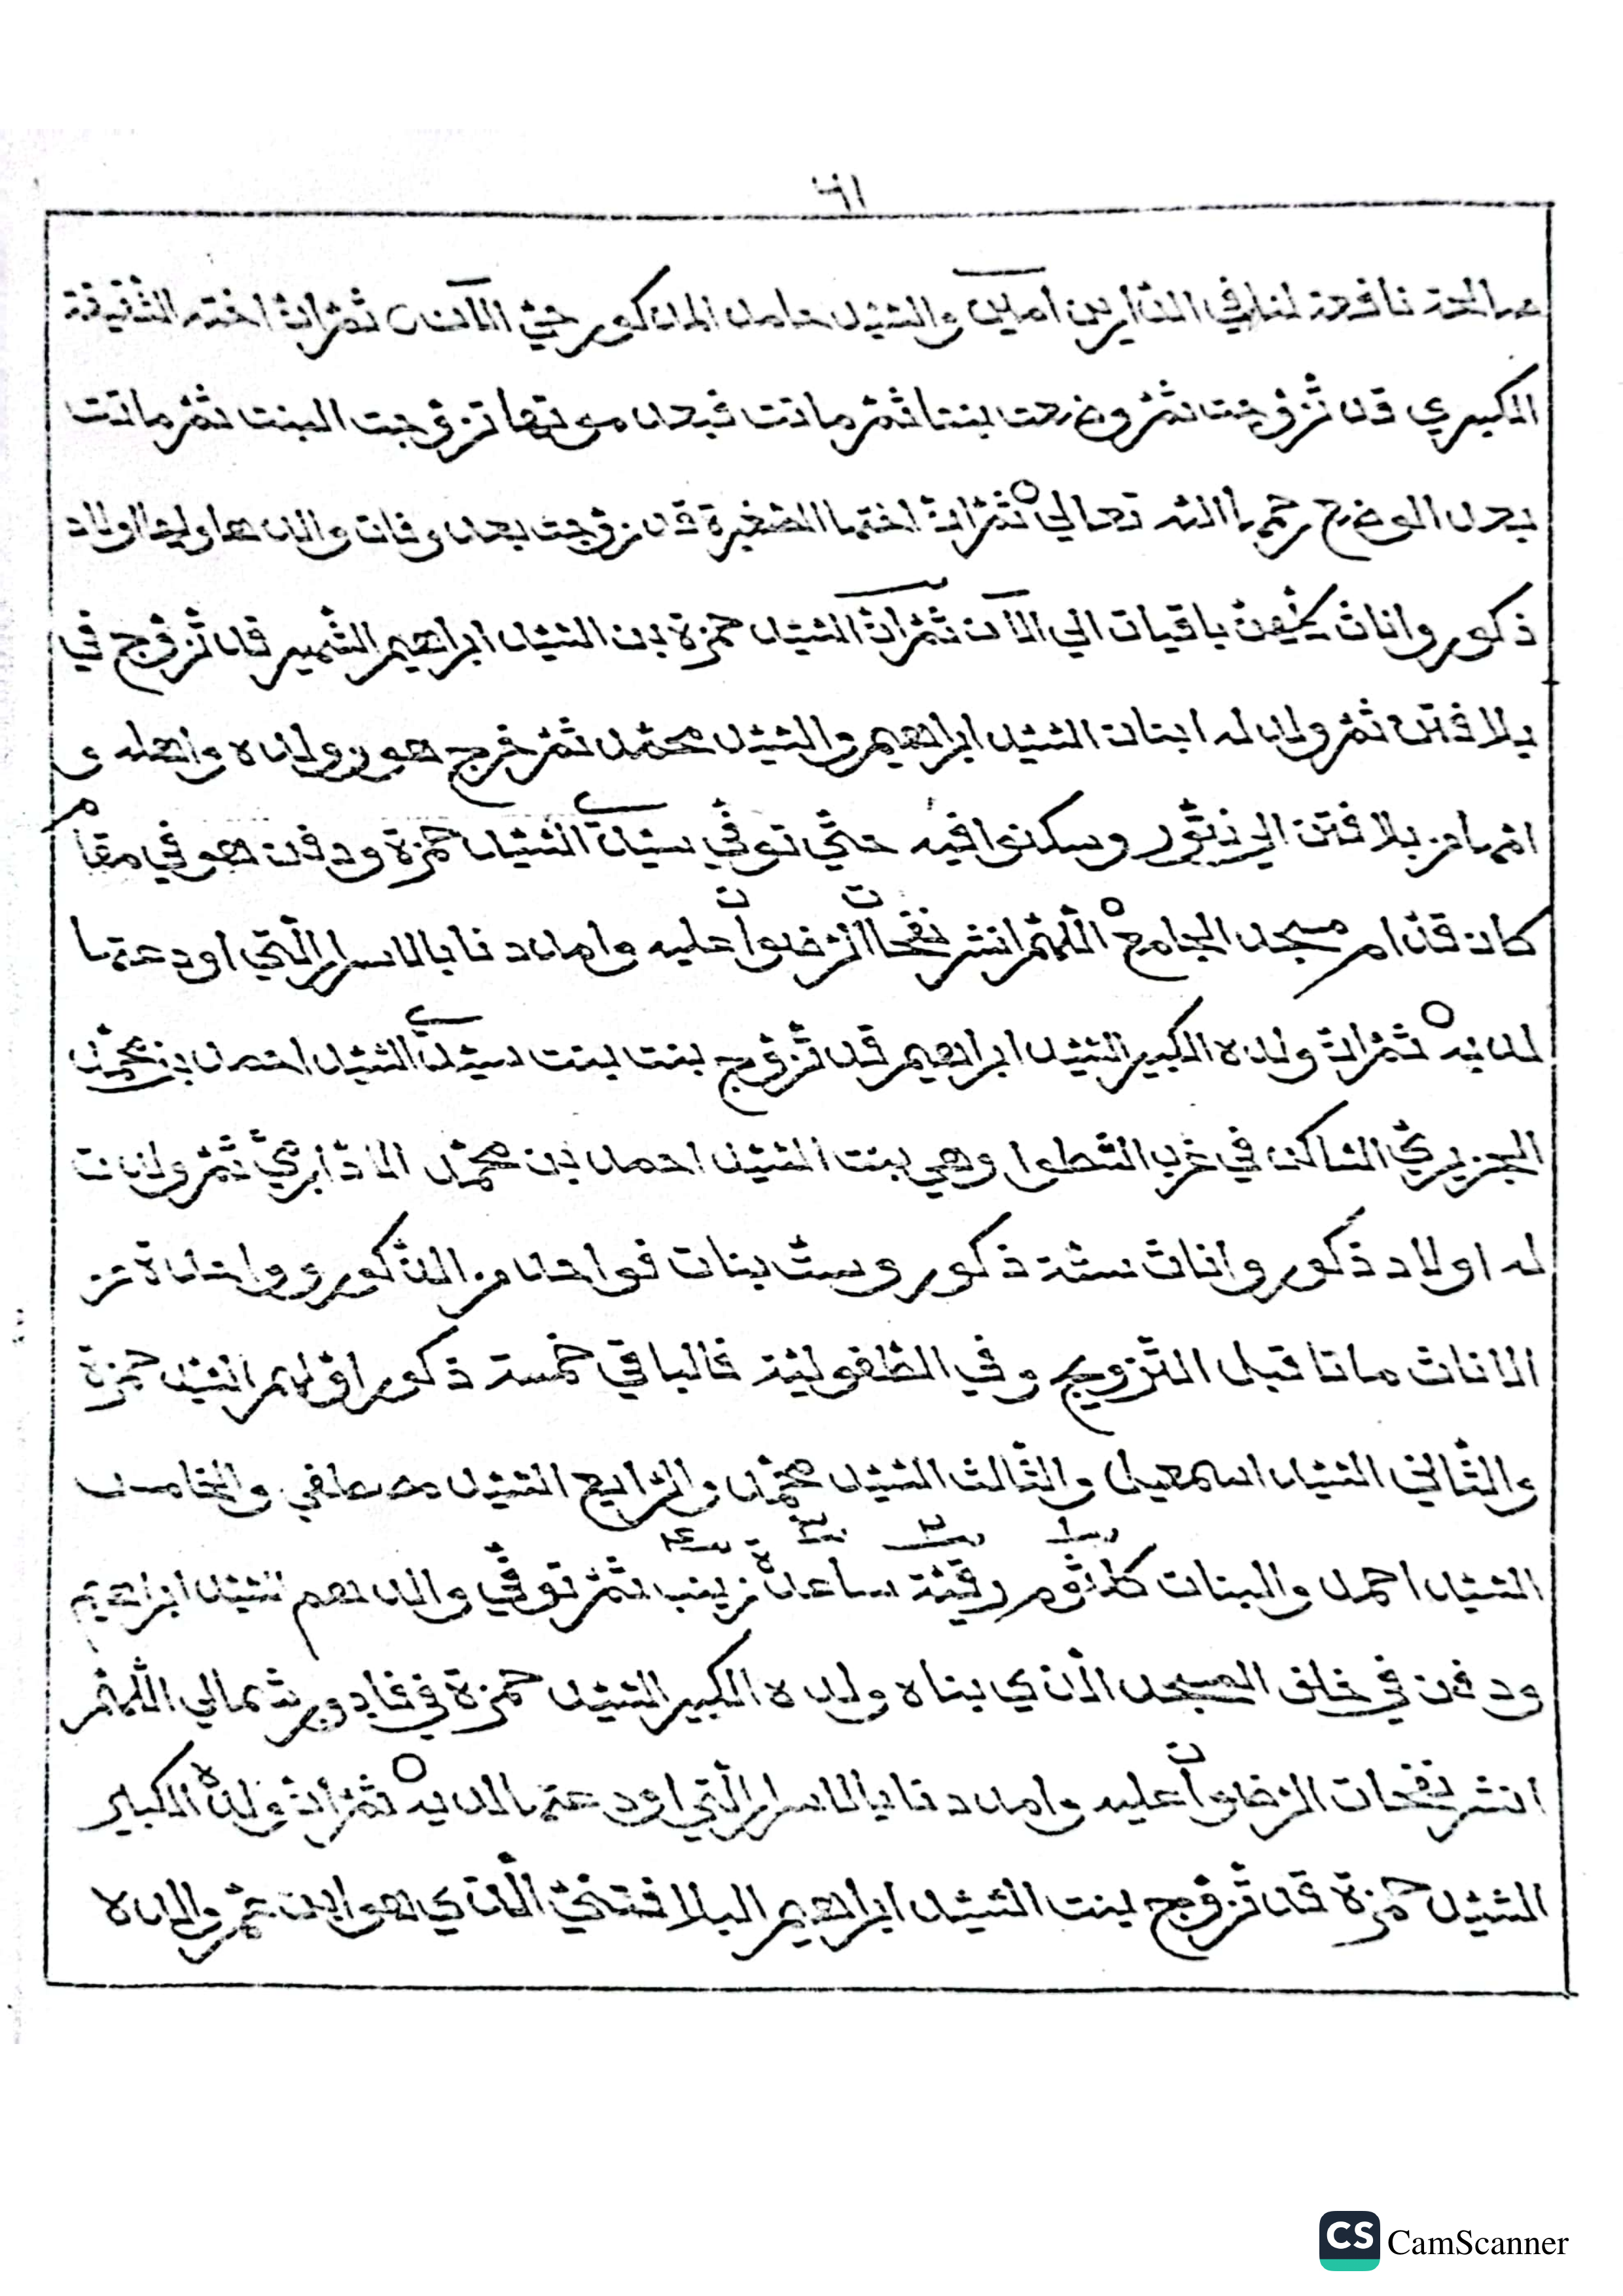 ٦١
صالحة نافعة لنا في الدّارين امين والسّيّد حامد المذكور حيّ الآن ثمّ انّ اخته الشّقيقة
الكبيري قد تزوّجت ثمّ وضعت بنتا ثمّ ماتت فبعد موتها تزوّجت البنت ثمّ ماتت
بعد الوضع رحمها اللّه تعالي ثمّ انّ اختها الصّغيرة قد تزوّجت بعد وفات والدها ولها اولاد
ذكور واناث كلّهنّ باقيات الي الآن ثمّ انّ السّيّد حمزة بن السّيّد ابراهيم الشّهير قد تزوّج في
بلافتن ثمّ ولد له ابنان السّيّد ابراهيم والسّيّد محمّد ثمّ خرج هو وولده واهله و
امّها من بلافتن الي وسكنوا فيه حتّي توفّي سيّدنا السّيّد حمزة ودفن هو في مقام
كان قدّام مسجد الجامع اللّهمّ انشر نفحات الرّضوان عليه وامددنا بالاسرار الّتي اودعتها
لديه ثمّ انّ ولده الكبير السّيّد ابراهيم قد تزوّج بنت بنت سيّدي السّيّد احمد بن محمّد
الجزيريّ السّاكن في غرب السّطوا وهي بنت السّيّد احمد بن محمّد ثمّ ولدت
له اولاد ذكور واناث ستّة ذكور وستّ بنات فواحد من الذّكور وواحدة من
الاناث ماتا قبل التّزويج وفي الطّفوليّة فالباقي خمسة ذكور اوّلهم السّيّد حمزة
والثّاني السّيّد اسمعيل والثّالث السّيّد محمّد والرّابع السّيّد مصطفي والخامس
السّيّد احمد والبنات كلثوم رقيّة ساعدة زينب ثمّ توفّي والدهم السّيّد ابراهيم
ودفن في خلف المسجد الّذي بناه ولده الكبير السّيّد حمزة في شمالي اللّهمّ
انشر نفحات الرّضوان عليه وامددنا بالاسرار الّتي اودعتها لديه ثمّ انّ ولده الكبير
السّيّد حمزة قد تزوّج بنت السّيّد ابراهيم البلافتنيّ الّذي هو ابن عمّ والده
CS CamScanner